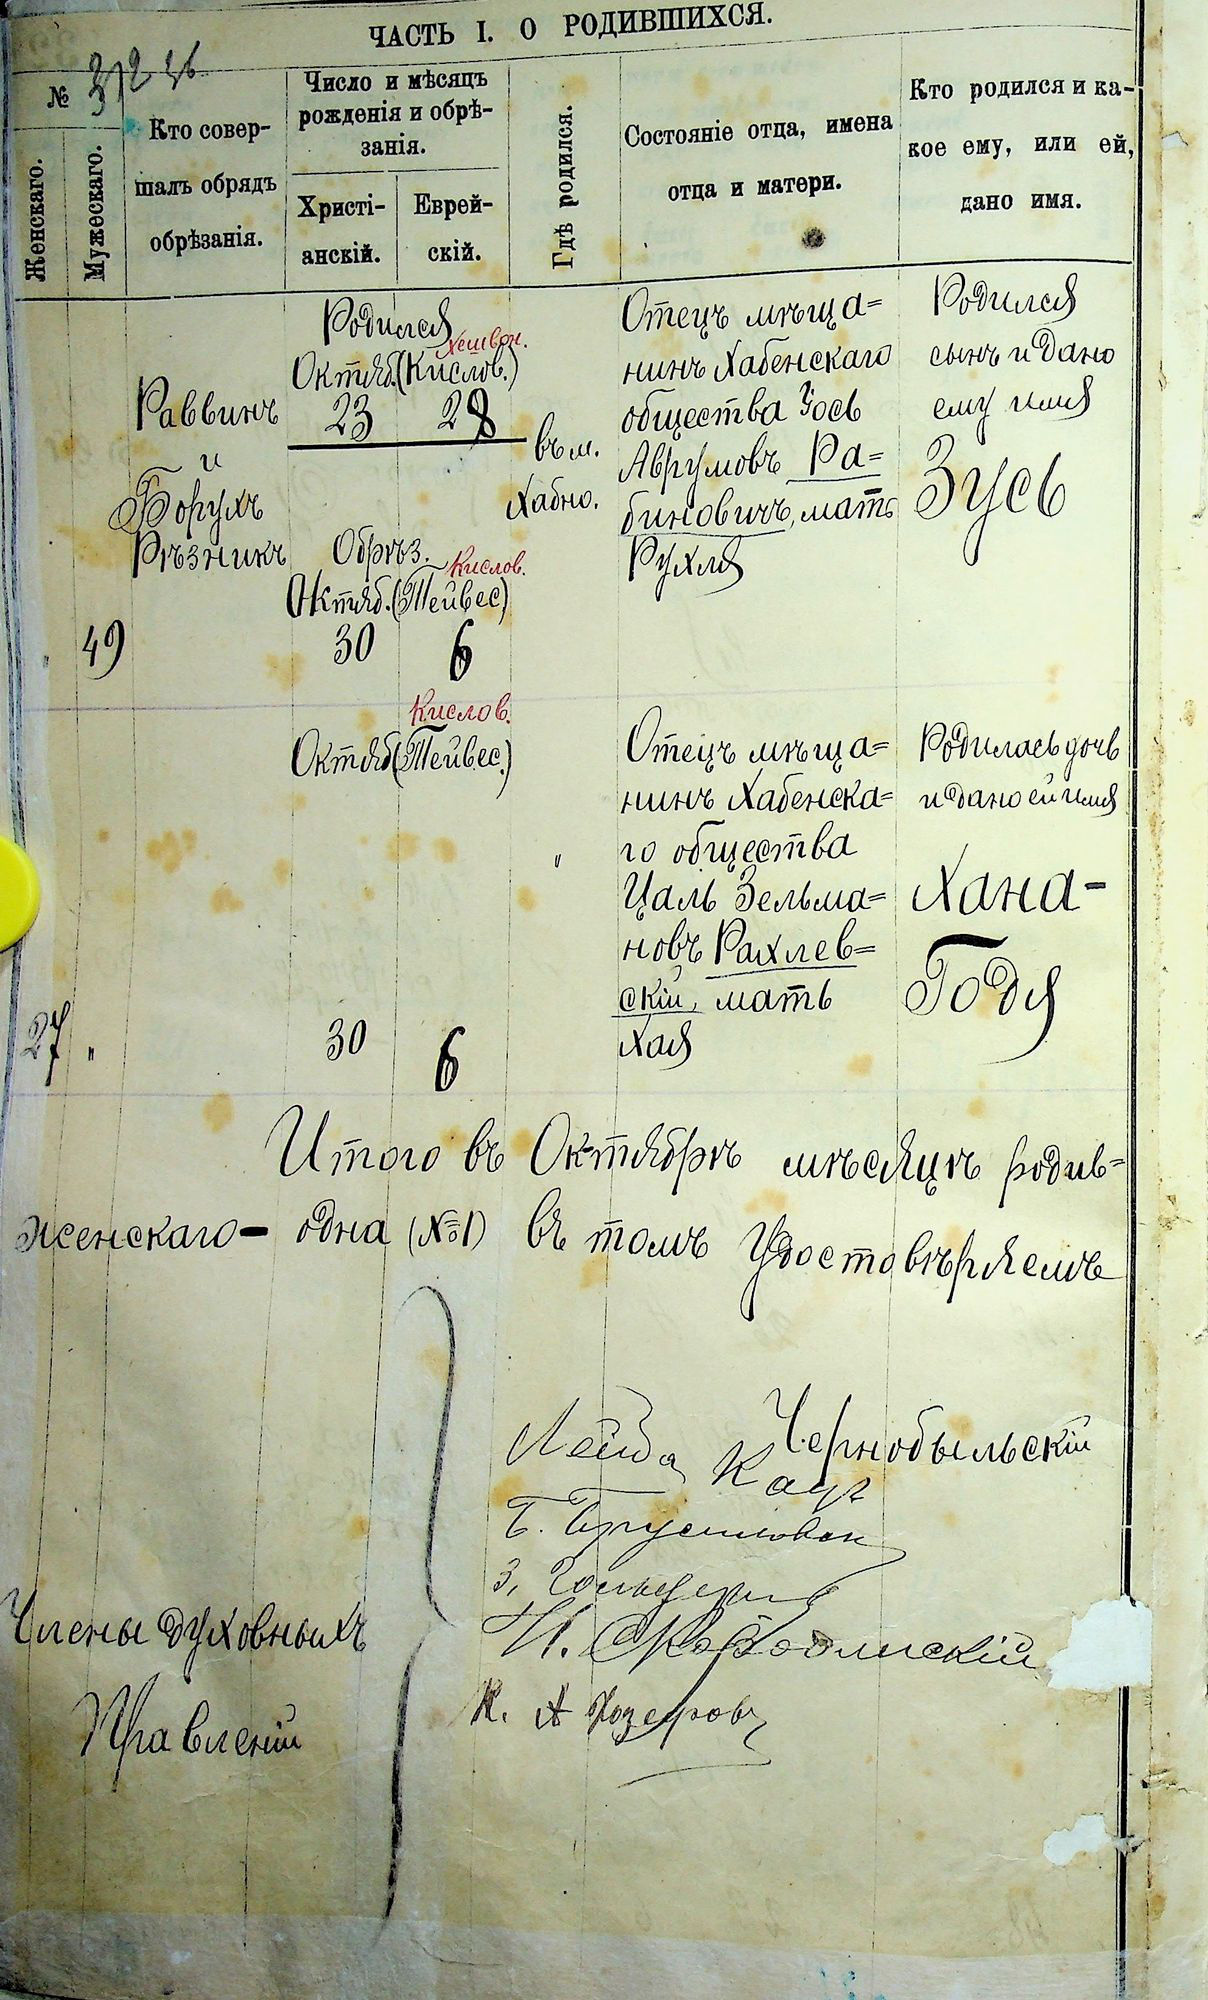 ЧАСТЬ I. О РОДИВШИХСЯ.
№
Женскаго.
Мужескаго.
Кто совер-
шалъ обрядъ
обрѣзанія.
Число и мѣсяцъ
рожденія и обрѣ-
занія.
Христі-
анскій.
Еврей-
скій.
Гдѣ родился.
Состояніе отца, имена
отца и матери.
Кто родился и ка-
кое ему, или ей,
дано имя.
49
Раввинъ
и
Борухъ
Рѣзникъ
Родился
Хешвон.
Октяб. (Кислов.)
23 28
Обрѣз.
Кислов.
Октяб. (Тейвес)
30 6
въ м.
Хабно.
Отецъ мѣща=
нинъ Хабенскаго
общества Іось
Аврумовъ Ра=
биновичъ, мать
Рухля
Родился
сынъ и дано
ему имя
Зусь
27 "
Кислов.
Октяб (Тейвес.)
30 6
"
Отецъ мѣща=
нинъ Хабенска=
го общества
Цаль Зельма=
новъ Рахлев=
скій, мать
Хая
Родилась дочь
и дано ей имя
Хана-
Годя
Итого въ Октябрѣ мѣсяцѣ родив=
женскаго - одна (№1) въ томъ Удостовѣряемъ
Чернобыльскій
Лейба Кацъ
Б.
З.
И.
К. А
Члены духовныхъ
Правленій